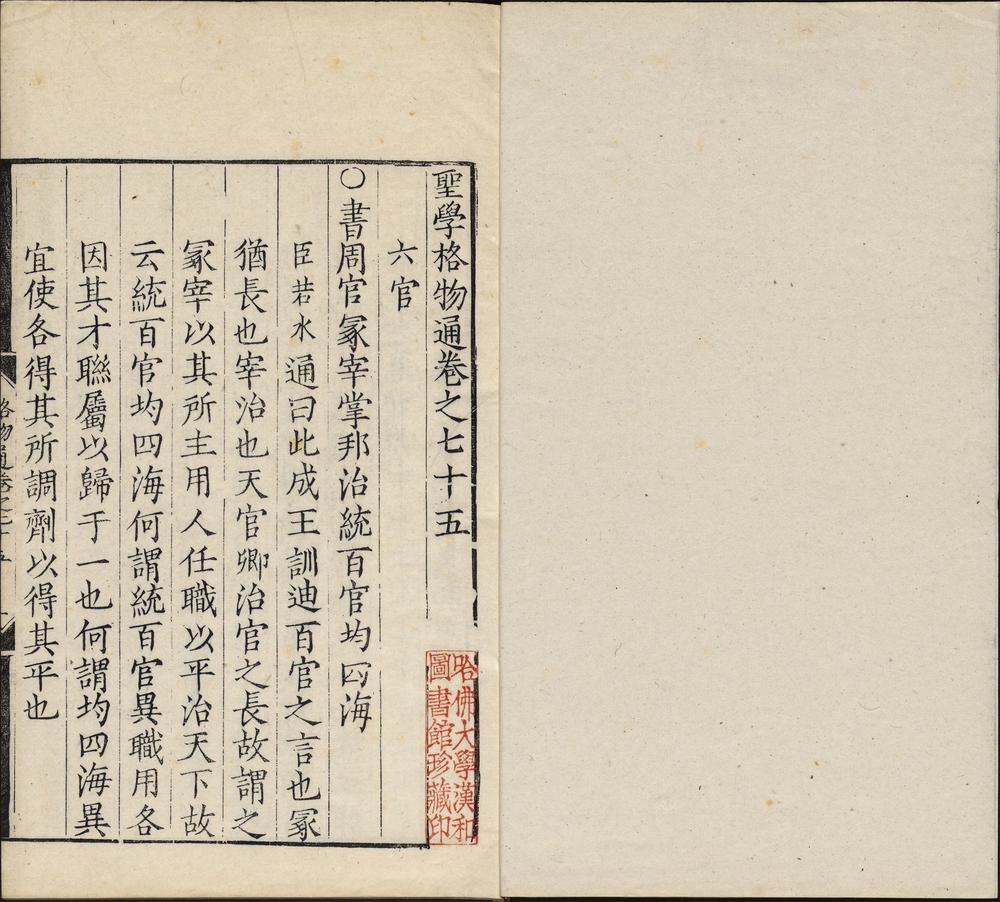 聖學格物通卷之七十五
六官
〇書周官冢宰掌邦治統百官均四海
臣若水通曰此成王訓迪百官之言也冢
猶長也宰治也天官卿治官之長故謂之
冢宰以其所主用人任職以平治天下故
云統百官均四海何謂統百官異職用各
因其才聮屬以歸于一也何謂均四海異
宜使各得其所調劑以得其平也
格物通卷之七十五
哈佛大學漢和
圖書館珍藏印